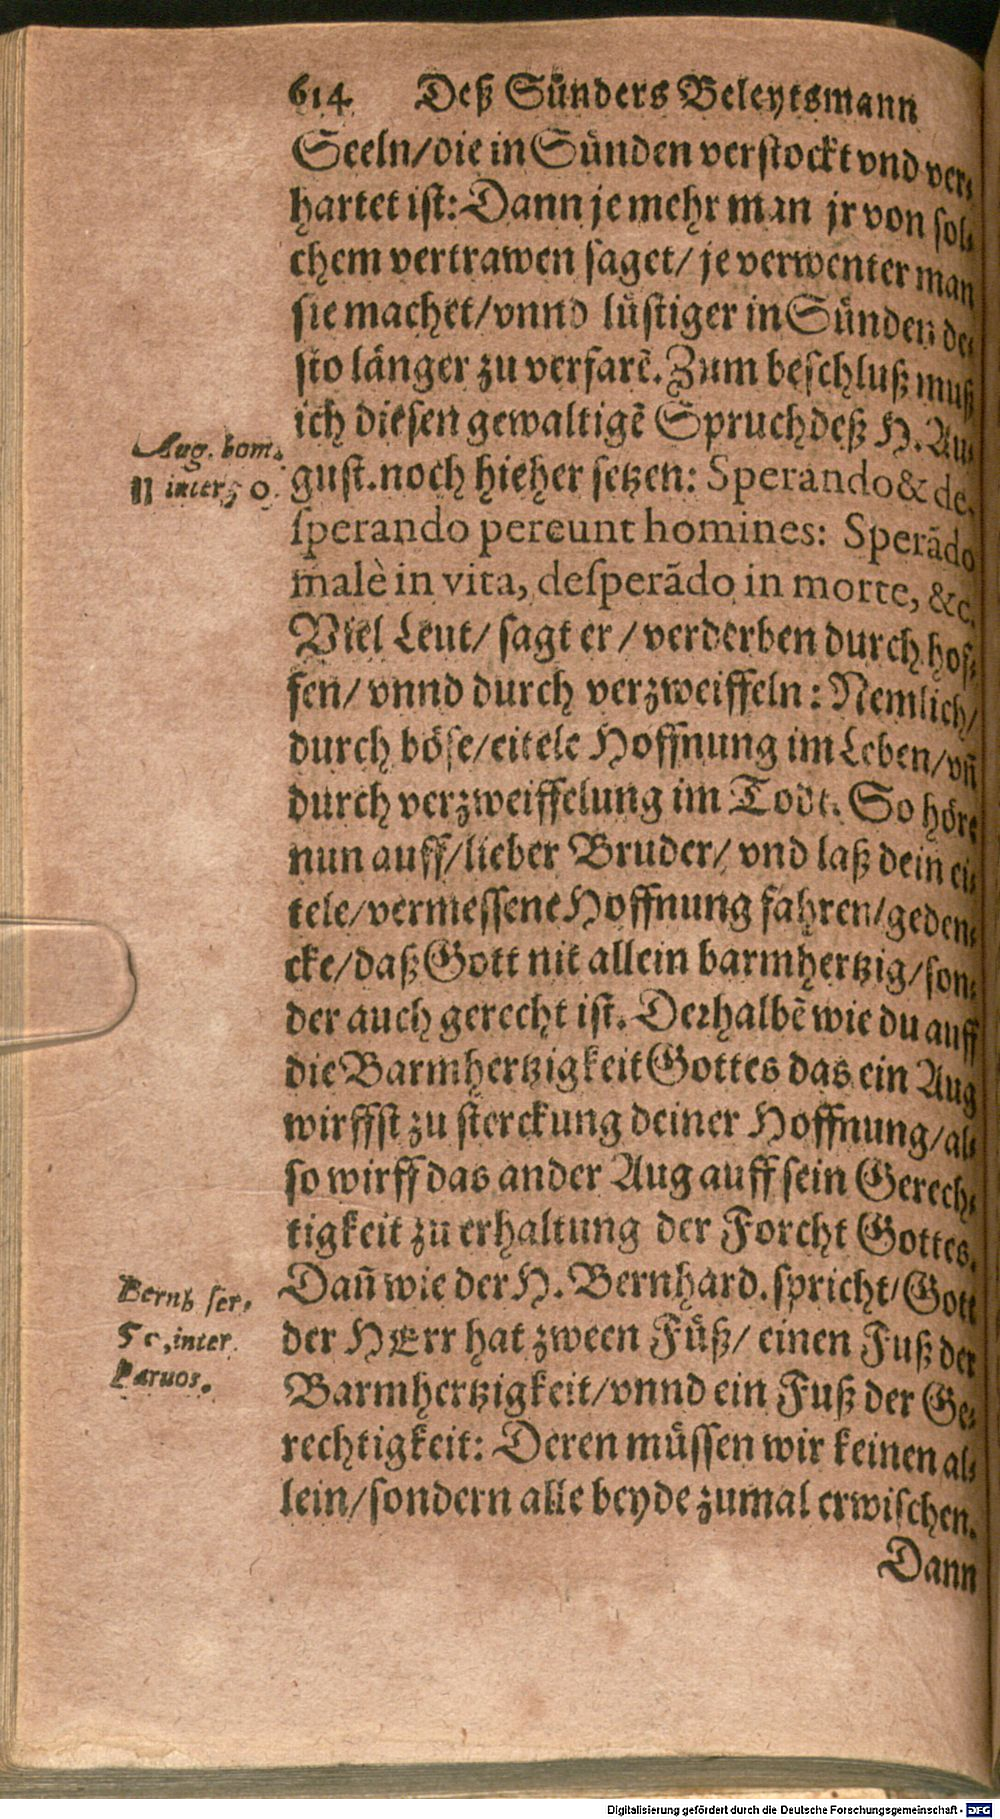 614 Deß Sünders Beleytsmann
Seeln/die in Sünden verstockt vnd ver-
hartet ist: Dann je mehr man jr von sol-
chem vertrawen saget/ je verwenter man
sie machet/vnnd lüstiger in Sünden de-
sto länger zu verfarẽ. Zum beschluß muß
ich diesen gewaltigẽ Spruch deß H. Au-
gust. noch hieher setzen: Sperando & de-
ſperando pereunt homines: Sperãdo
malè in vita, deſperãdo in morte, &c.
Viel Leut/ sagt er / verderben durch hof-
fen/ vnnd durch verzweiffeln: Nemlich/
durch böse/eitele Hoffnung im Leben/vñ
durch verzweiffelung im Todt. So höre
nun auff/lieber Bruder/ vnd laß dein ei-
tele/vermessene Hoffnung fahren/geden-
cke/daß Gott nit allein barmhertzig/son-
der auch gerecht ist. Derhalbẽ wie du auff
die Barmhertzigkeit Gottes das ein Aug
wirffst zu sterckung deiner Hoffnung/al-
so wirff das ander Aug auff sein Gerech-
tigkeit zu erhaltung der Forcht Gottes.
Dañ wie der H. Bernhard. spricht/Gott
der HErr hat zween Füß/ einen Fuß der
Barmhertzigkeit/vnnd ein Fuß der Ge-
rechtigkeit: Deren müssen wir keinen al-
lein/sondern alle beyde zumal erwischen.
Dann
Aug. hom.
11 inter 50.
Bernh ser.
inter
Paruos.
Digitalisierung gefördert durch die Deutsche Forschungsgemeinschaft - DFG